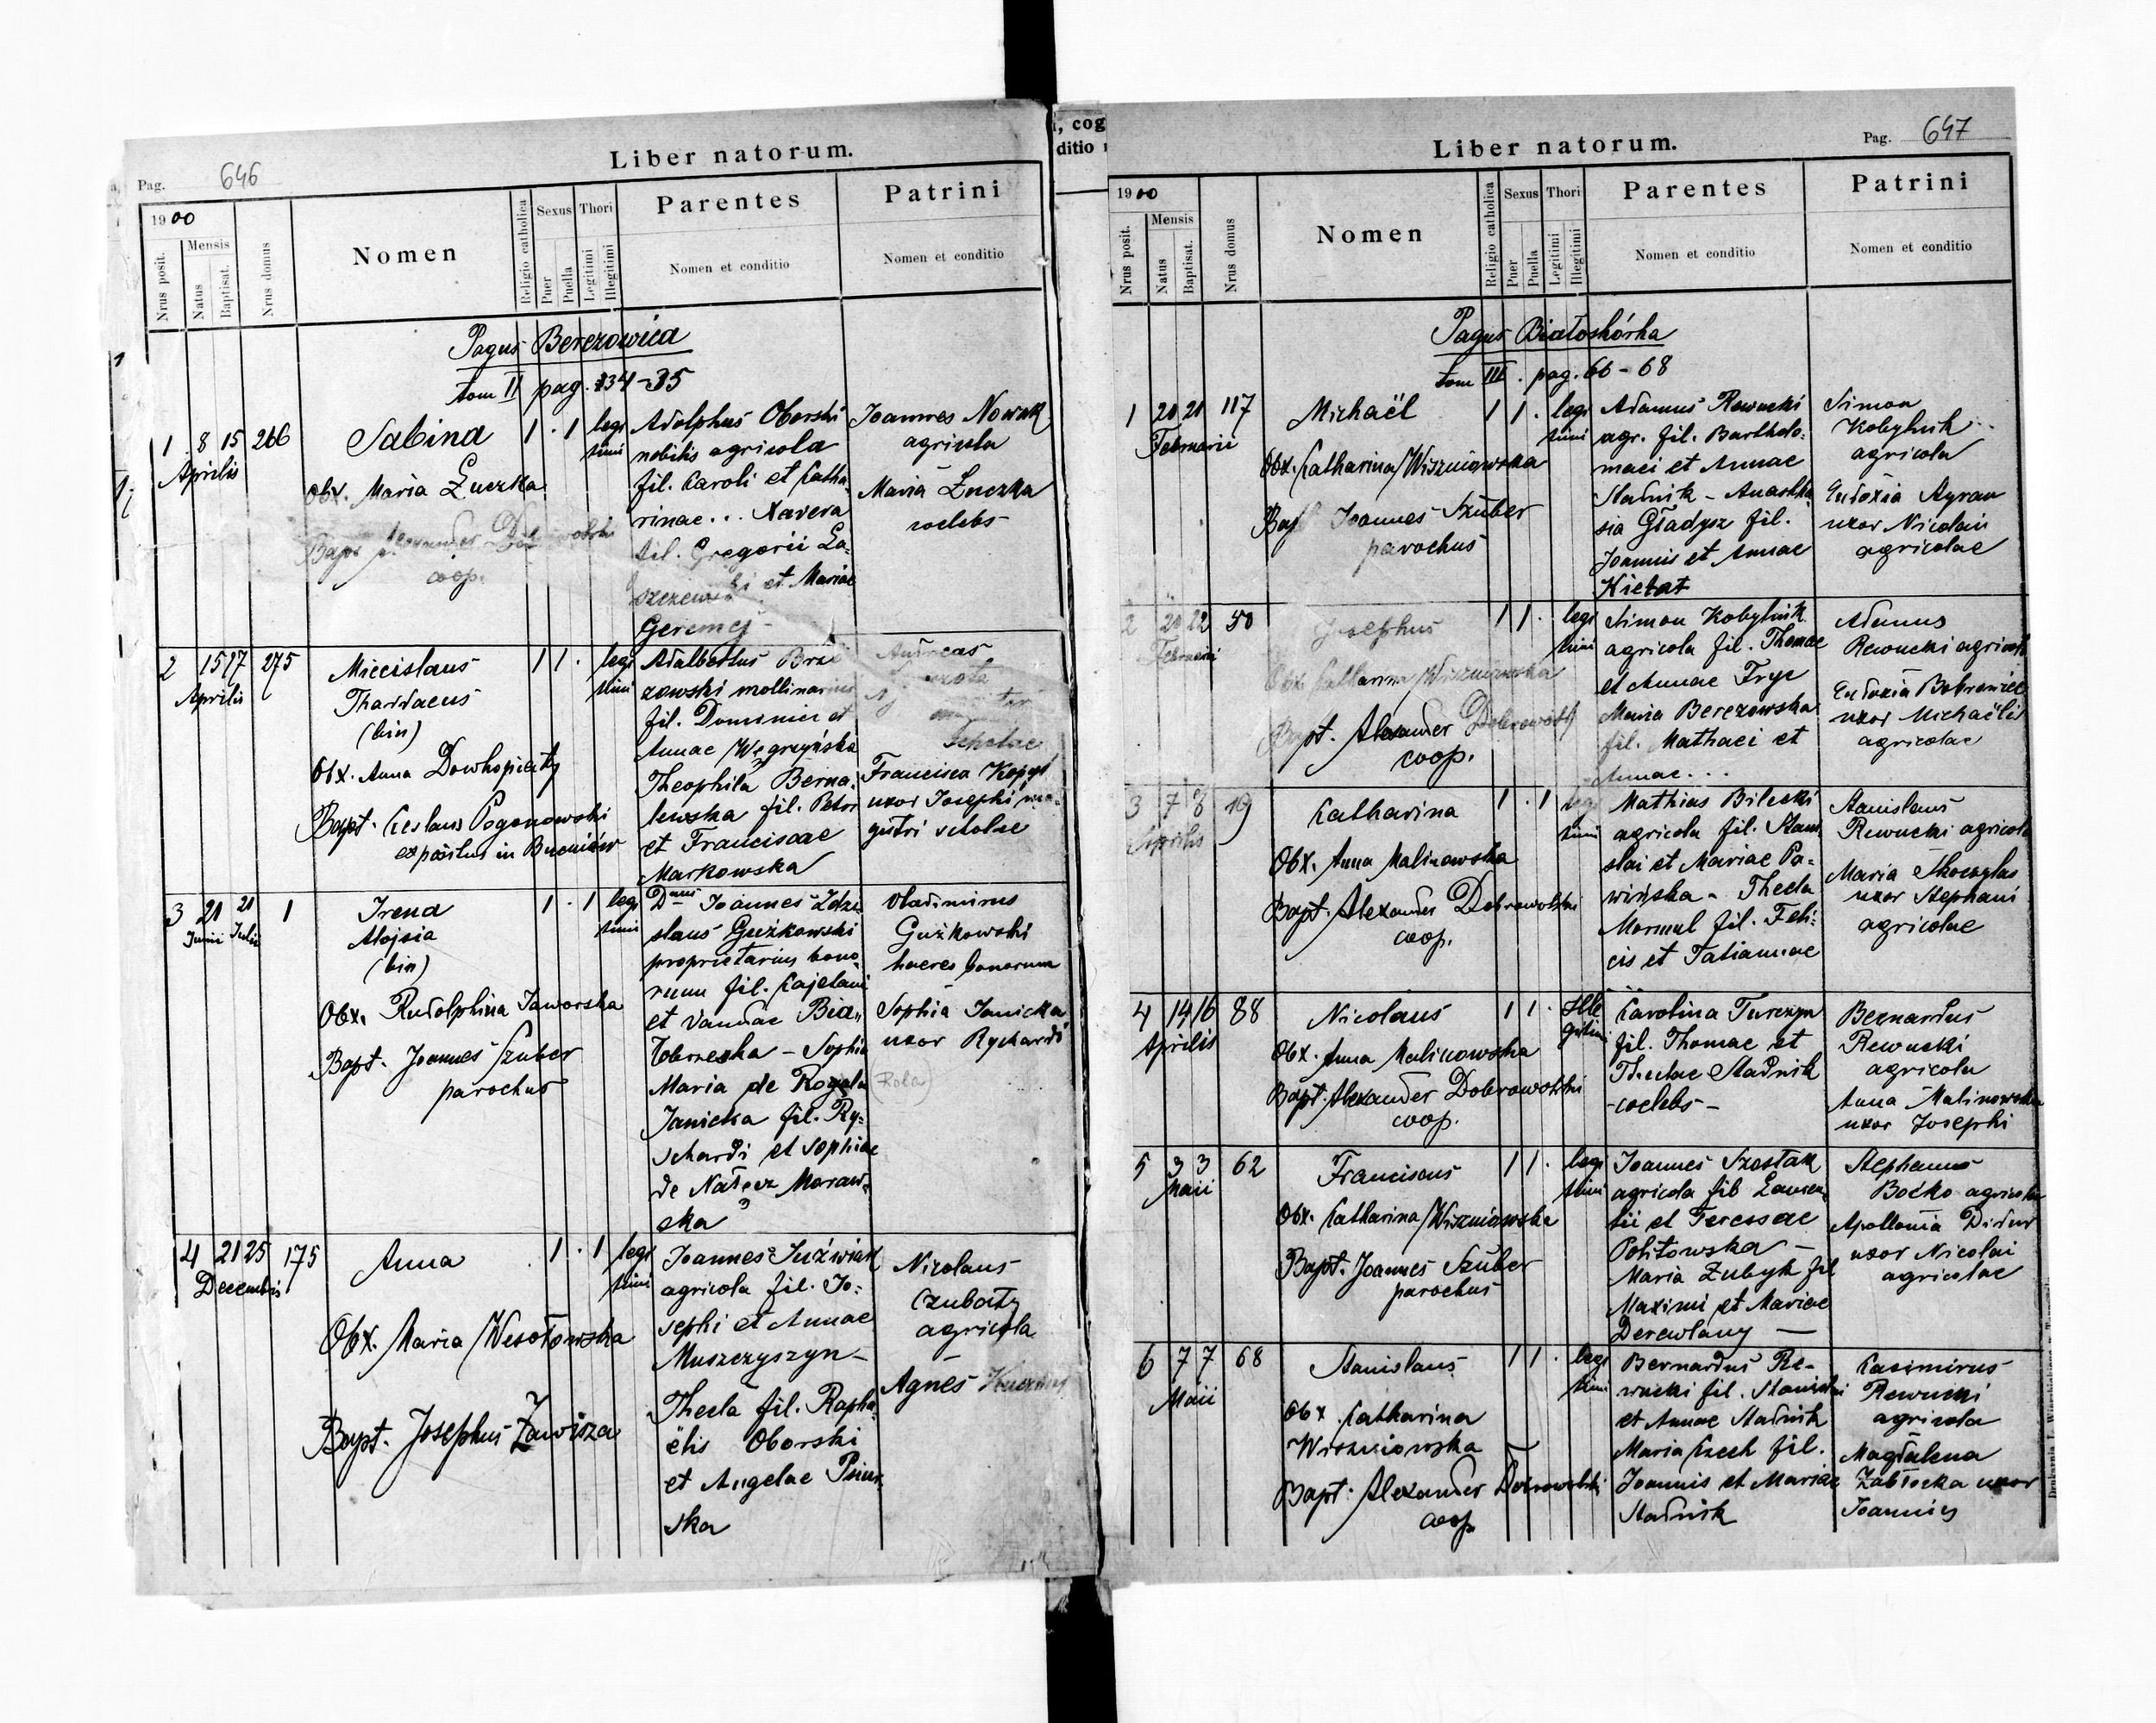 Liber natorum.
Pag. 646
1900
Nrus posit.
Mensis
Natus
Baptisat.
Nrus domus
Nomen
Religio catholica
Sexus
Puer
Puella
Thori
Legitimi
Illegitimi
Parentes
Nomen et conditio
Patrini
Nomen et conditio
Pagus Berezowica
tom II pag. 134-35
1 8 15 266
Aprilis
Sabina
1 . 1 legi
timi
Obx. Maria Łuczka
coop.
Adolphus Oborski
nobilis agricola
fil. Caroli et Catha-
rinae... Xavera
fil. Gregorii La-
et Mariae
Geremej-
Joannes Nowak
agricola
Maria Łuczka
coelebs-
2 15 17 275
Aprilis
Miecislaus
Thaddaeus
(bin)
1 1 . legi
timi
Obx. Anna Dowhopiaty
Bapt. Ceslaus Pogonowski
expositus in Bucniów
Adalbertus Brze
zowski mollinarius
fil. Dominici et
Annae Węgrzyńska
Theophila Berna-
lewska fil. Petri
et Franciscae
Markowska
Andreas
scholae
Francisca Kopyś
uxor Josephi ma-
gistri scholae
3 21 21 1
Junii Julii
Irena
Alojsia
(bin)
1 . 1 legi
timi
Obx. Rudolphina Jaworska
Bapt. Joannes Szuber
parochus
Dnus Joannes Zdzi
slaus Guzkowski
proprietarius bono-
rum fil. Cajetani
et Vandae Bia-
łobrzeska - Sophia
Maria de Rogala
Janicka fil. Ry-
schardi et Sophiae
de Nałęcz Moraw-
ska
Vladimirus
Guzkowski
haeres bonorum
Sophia Janicka
uxor Rychardi
(Rola)
4 21 25 175
Decembris
Anna
1 . 1 legi
timi
Obx. Maria Wesołowska
Bapt. Josephus Zawisza
Joannes Juźwiak
agricola fil. Jo-
sephi et Annae
Muszczyszyn-
Thecla fil. Rapha-
ëlis Oborski
et Angelae
ska
Nicolaus
Czubaty
agricola
Agnes
Liber natorum.
Pag. 647
1900
Nrus posit.
Mensis
Natus
Baptisat.
Nrus domus
Nomen
Religio catholica
Sexus
Puer
Puella
Thori
Legitimi
Illegitimi
Parentes
Nomen et conditio
Patrini
Nomen et conditio
Pagus Białoskórka
tom III. pag. 66-68
1 20 21 117
Februarii
Michaël
1 1 . legi
timi
Obx. Catharina Wiszniowska
Bapt Joannes Szuber
parochus
Adamus Rewucki
agr. fil. Bartholo-
maei et Annae
Stadnik - Anasta
sia Gładysz fil.
Joannis et Annae
Kietat
Simon
Kobylnik
agricola
Eudoxia Agran
uxor Nicolai
agricolae
2 20 22 50
Februarii
Josephus
1 1 . legi
timi
Obx Catharina Wiszniowska
Bapt. Alexander Dobrowolski
coop.
Simon Kobylnik
agricola fil. Thomae
et Annae Fryc
Maria Berezowska
fil. Mathaei et
Annae...
Adamus
Rewucki agricola
Eudoxia
uxor Michaëlis
agricolae
3 7 8 19
Aprilis
Catharina
1 . 1 legi
timi
Obx. Anna Malinowska
Bapt. Alexander Dobrowolski
coop.
Mathias Bilecki
agricola fil. Stani
slai et Mariae Pa-
wińska - Thecla
Mormul fil. Feli-
cis et Tatiannae
Stanislaus
Rewucki agricola
Maria
uxor Stephani
agricolae
4 14 16 88
Aprilis
Nicolaus
1 1 . Ille
gitimi
Obx. Anna Malinowska
Bapt. Alexander Dobrowolski
coop.
Carolina Turczyn
fil. Thomae et
Theclae Stadnik
-coelebs-
Bernardus
Rewucki
agricola
Anna Malinowska
uxor Josephi
5 3 3 62
Maii
Franciscus
1 1 . legi
timi
Obx. Catharina Wiszniowska
Bapt. Joannes Szuber
parochus
Joannes Szostak
agricola fil Lauren-
tii et Teressae
Politowska -
Maria Zubyk fil
Maximi et Mariae
Derewlany -
Stephanus
Boćko agricola
Apollonia Didur
uxor Nicolai
agricolae
6 7 7 68
Maii
Stanislaus
1 1 . legi
timi
Obx. Catharina
Wiszniowska
Bapt. Alexander Dobrowolski
coop
Bernardus Re-
wucki fil. Stanislai
et Annae Stadnik
Maria Czech fil.
Joannis et Mariae
Stadnik
Casimirus
Rewucki
agricola
Magdalena
Zabłocka uxor
Joannis